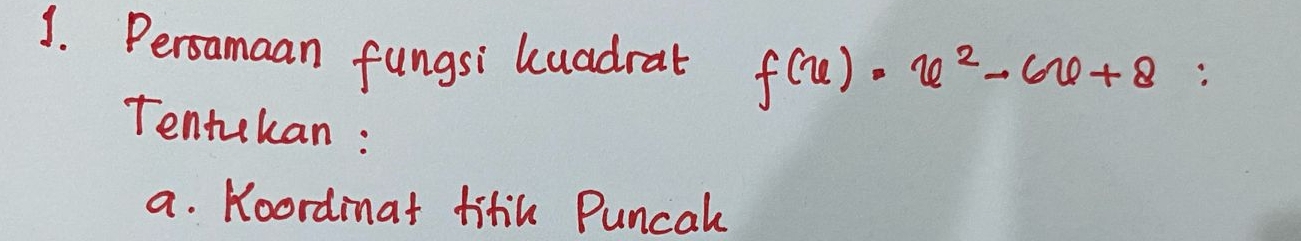 1. Persamaan fungsi kuadrat f(x) = x² - 6x + 8 :
Tentukan :
a. Koordinat titik Puncak